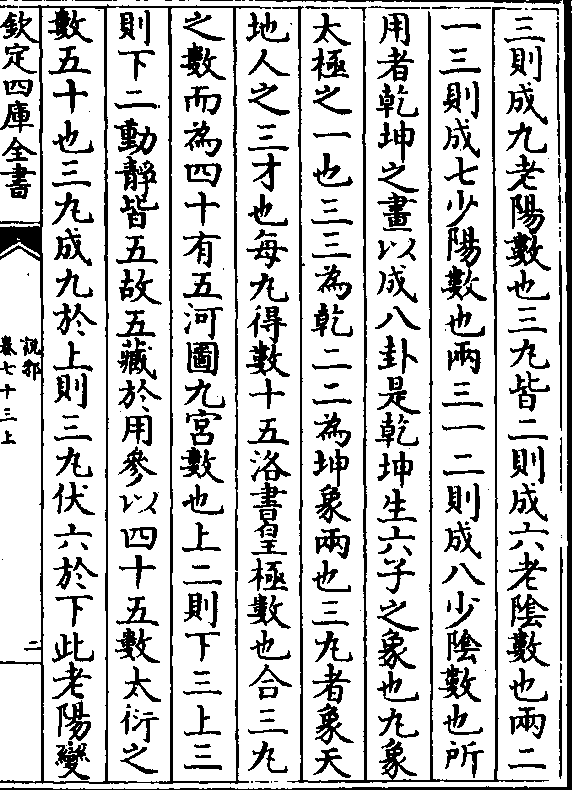 三則成九老陽數也三丸皆二則成六老陰數也兩二
一三則成七少陽數也兩三一二則成八少陰數也所
用者乾坤之畫以成八卦是乾坤生六子之象也丸象
太極之一也三三為乾二二為坤象兩也三丸者象天
地人之三才也每丸得數十五洛書皇極數也合三丸
之數而為四十有五河圖九宮數也上二則下三上三
則下二動靜皆五故五藏於用參以四十五數太衍之
數五十也三丸成九於上則三丸伏六於下此老陽變
欽定四庫全書
說郛
卷七十三上
二